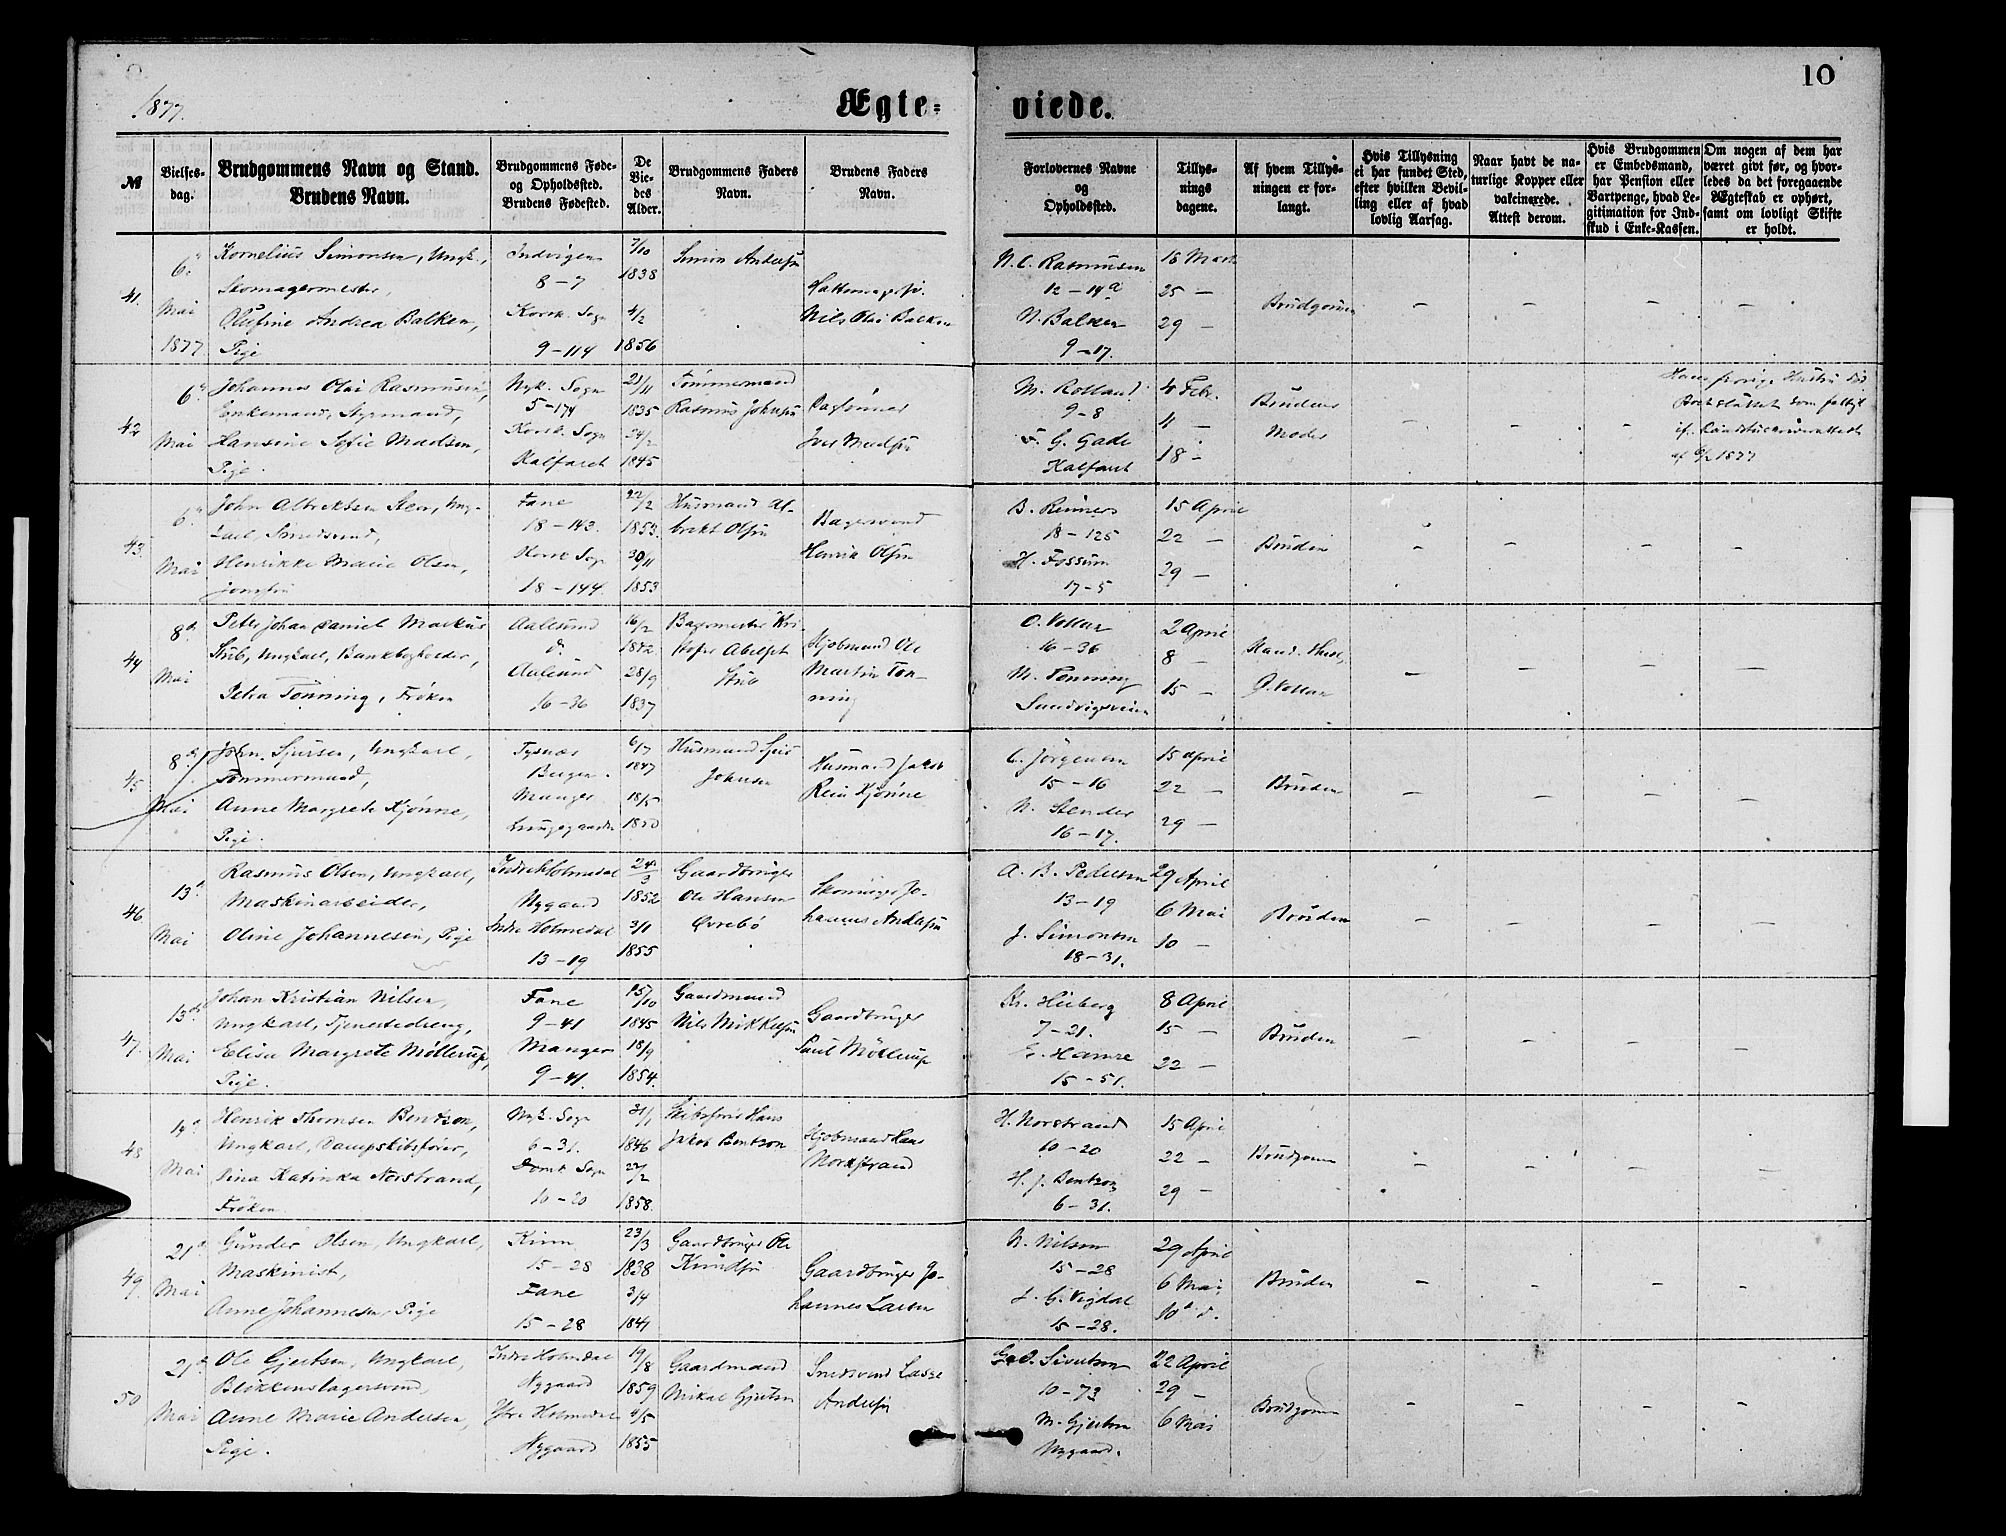 10
1877.
Ægte=
viede.
№
Vielses-
dag.
Brudgommens Navn og Stand.
Brudens Navn.
Brudgommens Føde-
og Opholdssted.
Brudens Fødested.
De
Vie-
des
Alder.
Brudgommens Faders
Navn.
Brudens Faders
Navn.
Forlovernes Navne
og
Opholdssted.
Tillys-
nings
dagene.
Af hvem Tillys-
ningen er for-
langt.
Hvis Tillysning
ei har fundet Sted,
efter hvilken Bevil-
ling eller af hvad
lovlig Aarsag.
Naar havt de na-
turlige Kopper eller
vakcinerede.
Attest derom.
Hvis Brudgommen
er Embedsmand,
har Pension eller
Vartpenge, hvad Le-
gitimation for Ind-
skud i Enke-Kassen.
Om nogen af dem har
været givt før, og hvor-
ledes da det foregaaende
Ægteskab er ophørt,
samt om lovligt Skifte
er holdt.
41.
6
Mai
1877
Kornelius Simonsen, Ungk.,
Skomagermester,
Olufine Andrea Balken,
Pige
Indvigen
8 – 7
Korsk. Sogn
9 – 114
7/10
1838
4/2
1856
Simon Andersen
Nils Olai Balken
N. C. Rasmusen
12 – 14 a
N. Balken
9 – 17.
18 Marts
25 –
29 –
Brudgommen
42
6
Mai
Johannes Olai Rasmusen,
Enkemand, Styrmand,
Hansine Sofie Madsen,
Pige.
Nyk. Sogn
5 – 174
Korsk. Sogn
Kalfaret
21/11
1835
24/2
1845
Tømmermand
Rasmus Johnsen
Iver Madsen
M. Rolland
9 – 8
F. G. Gade
Kalfaret
4 Febr.
11 –
18 –
Brudens
Moder
43.
6
Mai
John Albrektsen Steen, Ung-
karl, Smedsvend,
Henrikke Marie Olsen,
Fane
18 – 143.
Korsk. Sogn
18 – 144.
22/2
1853.
30/11
1853
Husmand Al-
brekt Olsen
Bagersvend
Henrik Olsen
B. Reimers
18 – 125
H. Fossum
17 – 5
15 April
22 –
29 –
Bruden
44
8
Mai
Peter Johan Daniel Markus
Stub, Ungkarl, Bankbogholder,
Petra Tonning, Frøken
Aalesund
d.
Aalesund
16 – 36
16/2
1842
28/9
1837
Bagermester Kri-
stofer Abelset
Stub
Kjøbmand Ole
Martin Ton-
ning
O. Vollan
16 – 36
M. Tonning
Sandvigsveien
2 April
8 –
15 –
O. Vollan
45
8
Mai
John Sjursen, Ungkarl,
Tømmermand,
Anne Margrete Kjønne,
Pige.
Tysnæs
Bergen.
Manger
Lungegaarden
6/7
1847
18/5
1850
Husmand Sjur
Johnsen
Husmand Jakob
Rein Kjønne
C. Jørgensen
15 – 16
N. Stender
16 – 17.
15 April
22 –
29 –
Bruden
46
13
Mai
Rasmus Olsen, Ungkarl,
Maskinarbeider,
Oline Johannesen, Pige
Indre Holmedal
Nygaard
Indre Holmedal
13 – 19
24/3
1852
3/1
1855
Gaardbruger
Ole Hansen
Øvrebø
Skomager Jo-
hannes Andersen
A. B. Pedersen
13 – 19
J. Simonsen
18 – 31.
29 April
6 Mai
10 –
Bruden
47.
13
Mai
Johan Kristian Nilsen,
Ungkarl, Tjenestedreng,
Elisa Margrete Møllerup,
Pige.
Fane
9 – 41
Manger
9 – 41.
15/10
1845
18/9
1854.
Gaardmand
Nils Mikkelsen
Gaardbruger
Paul Møllerup
Kr. Heiberg
7 – 21.
G. Hamre
15 – 51.
8 April
15 –
22 –
Bruden
48
14
Mai
Henrik Thomsen Bentzon,
Ungkarl, Dampskibsfører,
Dina Katinka Norstrand,
Frøken
Nyk. Sogn
6 – 31.
Domk. Sogn
10 – 20
31/1
1846
27/2
1858.
Skibsfører Hans
Jakob Bentzon
Kjøbmand Hans
Norstrand
H. Norstrand
10 – 20
H. J. Bentzon
6 – 31.
15 April
22 –
29 –
Brudgommen
49.
21
Mai
Gunder Olsen, Ungkarl,
Maskinist,
Anne Johannesen, Pige
Kinn
15 – 28
Fane
15 – 28
23/3
1838
3/4
1841
Gaardbruger Ole
Knudsen
Gaardbruger Jo-
hannes Larsen
N. Nilson
15 – 28
J. G. Vigdal
15 – 28.
29 April
6 Mai
10 d.
Bruden
50
21
Mai
Ole Gjertsen, Ungkarl,
Blikkenslagersvend,
Anne Marie Andersen,
Pige.
Indre Holmedal
Nygaard
Ytre Holmedal
Nygaard
19/8
1859
4/5
1855
Gaardmand
Mikal Gjertsen
Smedsvend Lasse
Andersen
G. A. Sivertson
10 – 73
M. Gjertsen
Nygaard.
22 April
29 –
6 Mai
Brudgommen